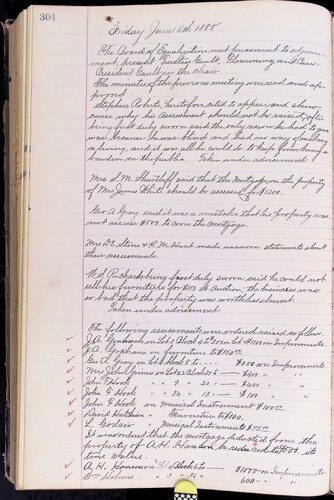 304
Friday June 8th 1888
The Board of Equalization met persuant to adjourn-
ment present Dudley Gault, Flemming and Carr.
President Gault in the chair
The minutes of the previous meeting was read and ap-
proved.
Stephen Roberts having been cited to appear and show
cause why his assessment should not be raised, after
being first duly sworn said the only reason he had to give
was because he was blind and had no way of making
a living, and it was all he could do to keep from being a
burden on the public. Taken under advisement
Mrs S. M. Shurtleff said that the Mortgage on the property
of Mrs Jane White should be assessed for $1200.
Geo A Gray said it was a mistake that his property was
not assessed $500, to cover the Mortgage.
Mrs Dr Stone & R. M. Hunt made unsworn statements about
their assessments.
W. S. Richards being first duly sworn said he could not
sell his furniture for $100 At Auction, the business was
so bad that the property was worthless almost.
Taken under advisement
The following assessments were ordered raised, as follows
J. A. Graham on Lots Block 6 to $1100 on Improvements
J. A. Graham on furniture to $150.00
Geo A. Gray on Lot Block $200 on Improvements
Mrs John Grimes on Lot 2 Block 26 $400 "
John F. Hook " 9 " 20 - $400 " "
John F. Hook " 24 " 13 - $100 " "
John F. Hook on Musical Instrument $100.00
David Hutchin " Furniture to $100.
L. Godair " Musical Instrument $75.00
It was ordered that the mortgage deducted from the
property of A. H. be reduced to $00. its
true value.
A. H. Block 6 to $1000 on Improvements
Wm Holmes 600 " "